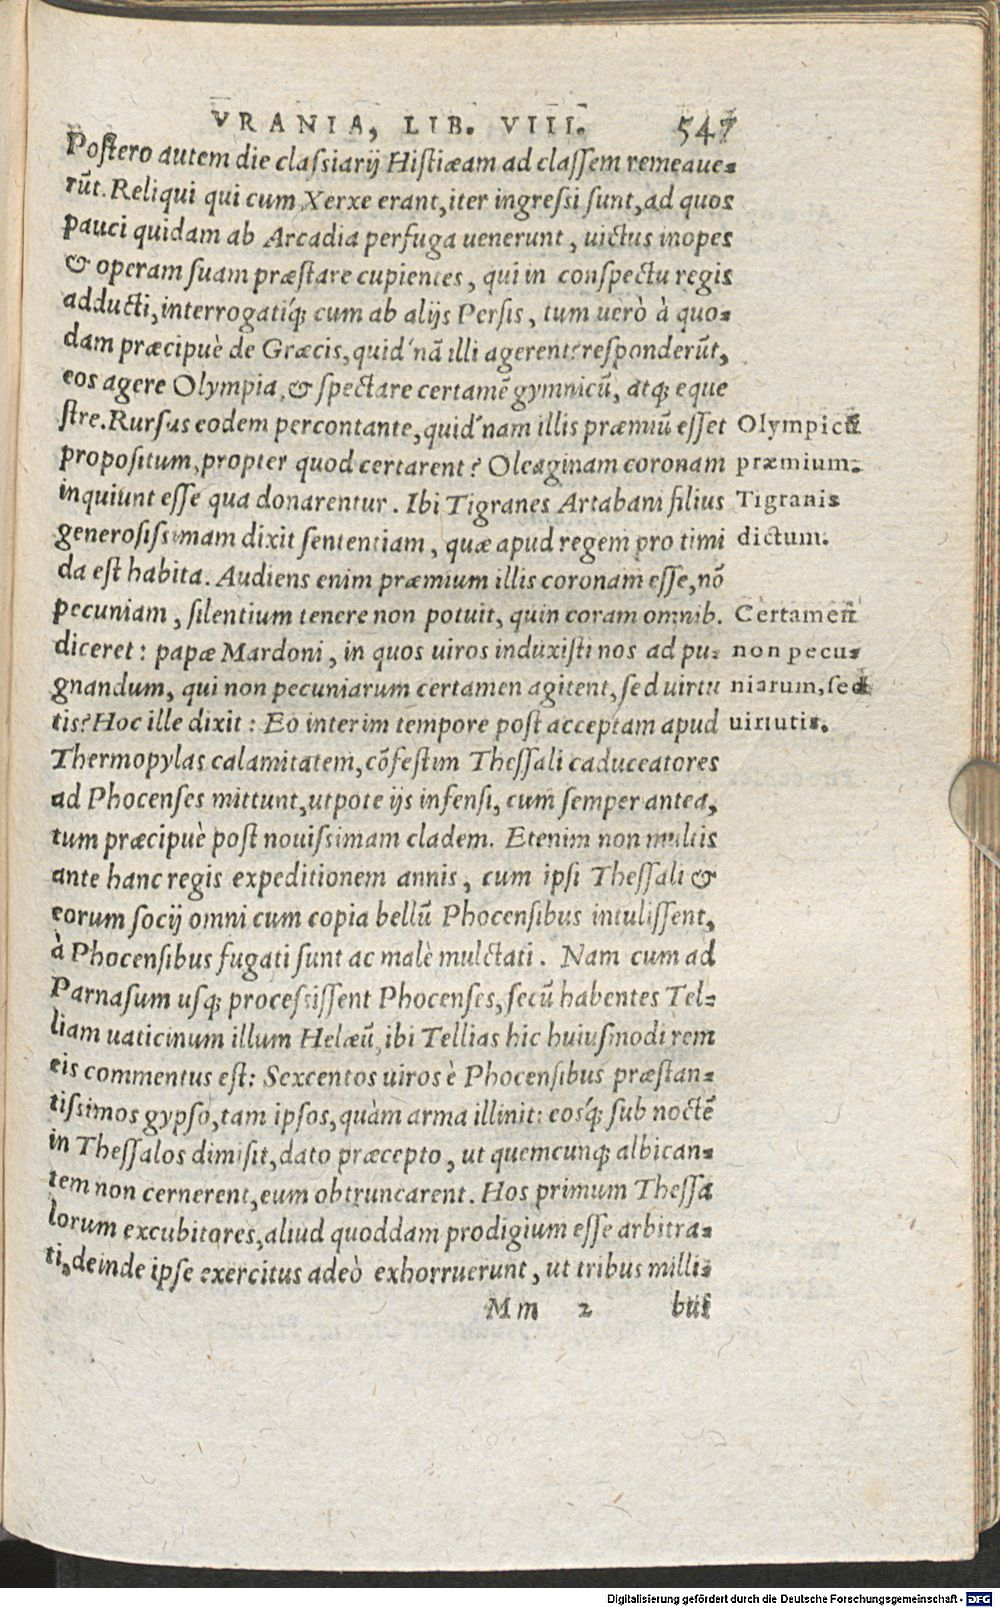 VRANIA, LIB. VIII. 547
Postero autem die claſsiarij Hiſtiæam ad claſſem remeaue-
rũt. Reliqui qui cum Xerxe erant, iter ingreſsi ſunt, ad quos
pauci quidam ab Arcadia perfuga uenerunt, uictus inopes
& operam ſuam præſtare cupientes, qui in conſpectu regis
adducti, interrogatiq́; cum ab alijs Perſis, tum uerò à quo-
dam præcipuè de Græcis, quid'nã illi agerent? reſponderũt,
eos agere Olympia, & ſpectare certamẽ gymnicũ, atq; eque
ſtre. Rurſus eodem percontante, quid'nam illis præmiũ eſſet Olympicũ
propoſitum, propter quod certarent? Oleaginam coronam præmium.
inquiunt eſſe qua donarentur. Ibi Tigranes Artabani filius Tigranis
generoſiſsimam dixit ſententiam, quæ apud regem pro timi dictum.
da eſt habita. Audiens enim præmium illis coronam eſſe, nõ
pecuniam, ſilentium tenere non potuit, quin coram omnib. Certamen
diceret: papæ Mardoni, in quos uiros induxiſti nos ad pu- non pecu-
gnandum, qui non pecuniarum certamen agitent, ſed uirtu niarum, ſed
tis? Hoc ille dixit: Eo interim tempore poſt acceptam apud uirtutis.
Thermopylas calamitatem, cõfeſtim Theſſali caduceatores
ad Phocenſes mittunt, utpote ijs infenſi, cum ſemper antea,
tum præcipuè poſt nouiſsimam cladem. Etenim non multis
ante hanc regis expeditionem annis, cum ipſi Theſſali &
eorum ſocij omni cum copia bellũ Phocenſibus intuliſſent,
à Phocenſibus fugati ſunt ac malè mulctati. Nam cum ad
Parnaſum uſq; proceſsiſſent Phocenſes, ſecũ habentes Tel-
liam uaticinum illum Helæũ, ibi Tellias hic huiuſmodi rem
eis commentus eſt: Sexcentos uiros è Phocenſibus præſtan-
tiſsimos gypſo, tam ipſos, quàm arma illinit: eosq́; ſub noctẽ
in Theſſalos dimiſit, dato præcepto, ut quemcunq; albican-
tem non cernerent, eum obtruncarent. Hos primum Theſſa
lorum excubitores, aliud quoddam prodigium eſſe arbitra-
ti, deinde ipſe exercitus adeò exhorruerunt, ut tribus milli-
Mm 2 bus
Digitalisierung gefördert durch die Deutsche Forschungsgemeinschaft - DFG